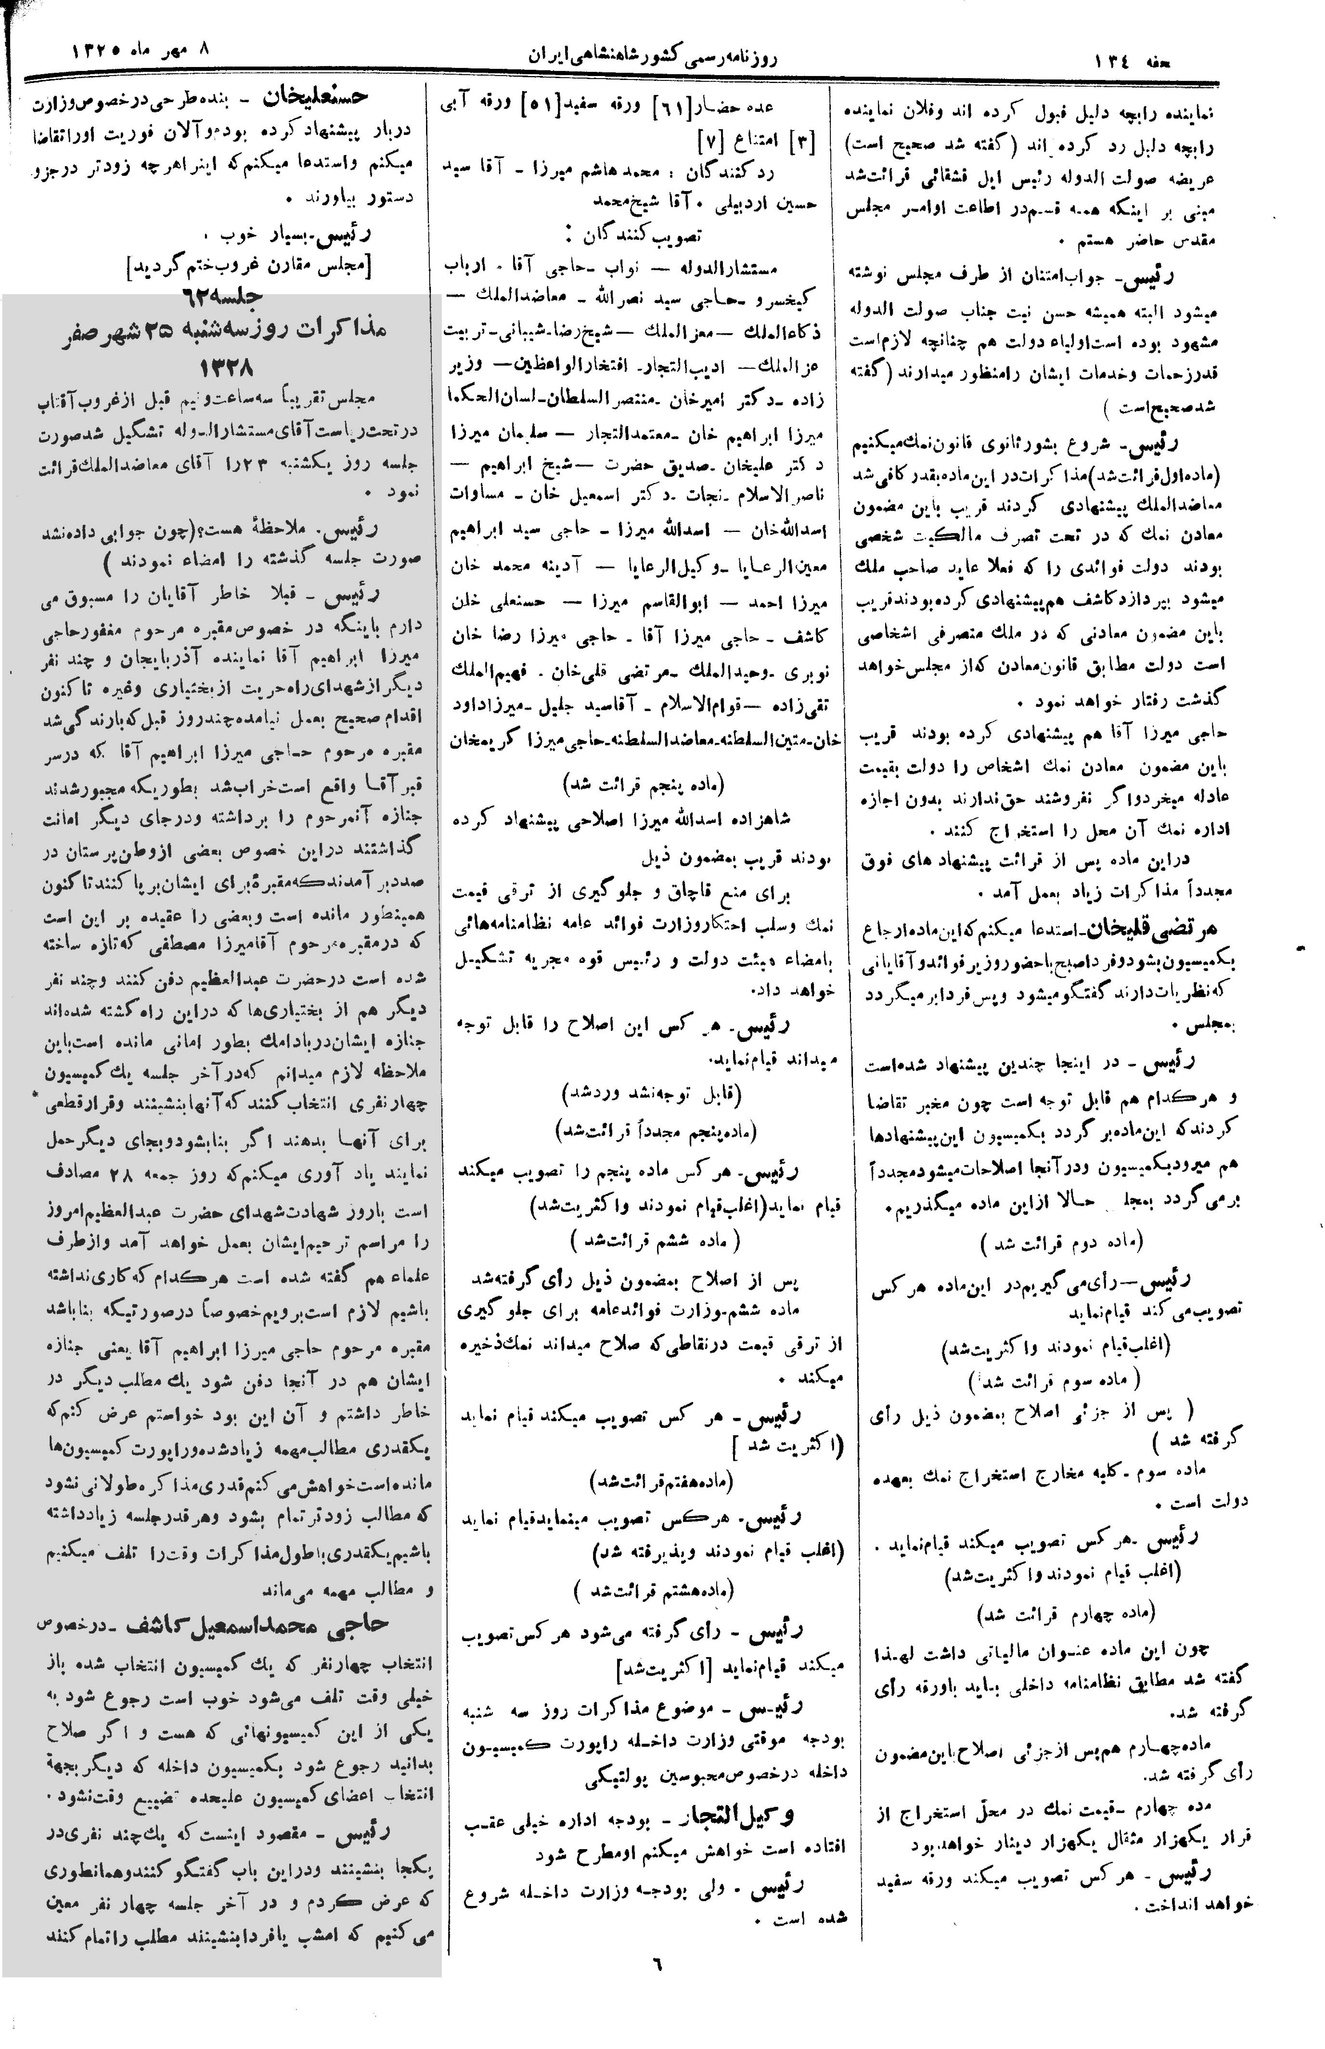 صفحه ۱۳۴
روزنامه رسمی کشور شاهنشاهی ایران
۸ مهر ماه ۱۳۲۵
نماینده را بچه دلیل قبول کرده اند و فلان نماینده
را بچه دلیل رد کرده اند (گفته شد صحیح است)
عریضه صولت الدوله رئیس ایل قشقائی قرائت شد
مبنی بر اینکه همه قسم در اطاعت اوامر مجلس
مقدس حاضر هستم .
رئیس - جواب امتنان از طرف مجلس نوشته
میشود البته همیشه حسن نیت جناب صولت الدوله
مشهود بوده است اولیاء دولت هم چنانچه لازم است
قدر زحمات و خدمات ایشان را منظور میدارند (گفته
شد صحیح است )
رئیس - شروع بشور ثانوی قانون نمک میکنیم
(ماده اول قرائت شد) مذاکرات در این ماده بقدر کافی شد
معاضد الملك پیشنهادی کردند قریب باین مضمون
معادن نمک که در تحت تصرف مالکیت شخصی
بودند دولت فوائدی را که فعلا عاید صاحب ملك
میشود بپردازد کاشف هم پیشنهادی کرده بودند قریب
باین مضمون معادنی که در ملك متصرفی اشخاصی
است دولت مطابق قانون معادن که از مجلس خواهد
گذشت رفتار خواهد نمود .
حاجی میرزا آقا هم پیشنهادی کرده بودند قریب
باین مضمون معادن نمک اشخاص را دولت بقیمت
عادله میخرد و اگر نفروشند حق ندارند بدون اجازه
اداره نمك آن محل را استخراج کنند .
در این ماده پس از قرائت پیشنهاد های فوق
مجدداً مذاکرات زیاد بعمل آمد .
مرتضی قلیخان - استدعا میکنم که این ماده ارجاع
بکمیسیون بشود و فردا صبح با حضور وزیر فوائد و آقایانی
که نظریات دارند گفتگو میشود و پس فردا بر میگردد
بمجلس .
رئیس - در اینجا چندین پیشنهاد شده است
و هر کدام هم قابل توجه است چون مخبر تقاضا
کردند که این ماده بر گردد بکمیسیون این پیشنهادها
هم میرود بکمیسیون و در آنجا اصلاحات میشود مجدداً
بر می گردد بمجلس حالا از این ماده میگذریم .
(ماده دوم قرائت شد )
رئیس - رأی می گیریم در این ماده هر کس
تصویب می کند قیام نماید
(اغلب قیام نمودند و اکثریت شد)
( ماده سوم قرائت شد )
( پس از جزئی اصلاح بمضمون ذیل رأی
گرفته شد )
ماده سوم - کلیه مخارج استخراج نمك بعهده
دولت است .
رئیس - هر کس تصویب میکند قیام نماید .
(اغلب قیام نمودند و اکثریت شد)
(ماده چهارم قرائت شد )
چون این ماده عنوان مالیاتی داشت لهذا
گفته شد مطابق نظامنامه داخلی بیاید با ورقه رأی
گرفته شد.
ماده چهارم هم پس از جزئی اصلاح باین مضمون
رأی گرفته شد.
مده چهارم - قیمت نمك در محل استخراج از
قرار یکهزار مثقال یکهزار دینار خواهد بود
رئیس - هر کس تصویب میکند ورقه سفید
خواهد انداخت .
عده حضار [۶۱] ورقه سفید [۵۱] ورقه آبی
[۳] امتناع [۷]
رد کنندگان : محمد هاشم میرزا - آقا سید
حسین اردبیلی . آقا شیخ محمد
تصویب کنندگان :
مستشار الدوله — نواب - حاجی آقا . ارباب
کیخسرو - حاجی سید نصر الله - معاضد الملك —
ذکاء الملك — معز الملك — شیخ رضا - شیبانی - تربیت
عز الملك — ادیب التجار - افتخار الواعظین — وزیر
زاده - دکتر امیر خان - منتصر السلطان - لسان الحکما
میرزا ابراهیم خان - معتمد التجار — سلیمان میرزا
دکتر علیخان - صدیق حضرت — شیخ ابراهیم —
ناصر الاسلام - نجات . دکتر اسمعیل خان - مساوات
اسد الله خان — اسد الله میرزا - حاجی سید ابراهیم
معین الرعایا - وکیل الرعایا — آدینه محمد خان
میرزا احمد — ابو القاسم میرزا — حسنعلی خان
کاشف - حاجی میرزا آقا . حاجی میرزا رضا خان
نوبری - وحید الملك - مرتضی قلی خان . فهیم الملك
تقی زاده — قوام الاسلام - آقا سید جلیل - میرزا داود
خان - متین السلطنه - معاضد السلطنه - حاجی میرزا کریمخان
(ماده پنجم قرائت شد)
شاهزاده اسدالله میرزا اصلاحی پیشنهاد کرده
بودند قریب بمضمون ذیل
برای منع قاچاق و جلوگیری از ترقی قیمت
نمك و سلب احتکار وزارت فوائد عامه نظامنامه هائی
بامضاء هیئت دولت و رئیس قوه مجریه تشکیل
خواهد داد.
رئیس - هر کس این اصلاح را قابل توجه
میداند قیام نماید.
(قابل توجه نشد ورد شد)
(ماده پنجم مجدداً قرائت شد)
رئیس - هر کس ماده پنجم را تصویب میکند
قیام نماید (اغلب قیام نمودند و اکثریت شد)
( ماده ششم قرائت شد )
پس از اصلاح بمضمون ذیل رأی گرفته شد
ماده ششم - وزارت فوائد عامه برای جلو گیری
از ترقی قیمت در نقاطی که صلاح میداند نمك ذخیره
میکند .
رئیس - هر کس تصویب میکند قیام نماید
(اکثریت شد ]
(ماده هفتم قرائت شد)
رئیس - هر کس تصویب مینماید قیام نماید
(اغلب قیام نمودند و پذیرفته شد)
(ماده هشتم قرائت شد )
رئیس - رأی گرفته می شود هر کس تصویب
میکند قیام نماید [اکثریت شد]
رئیس - موضوع مذاکرات روز سه شنبه
بودجه موقتی وزارت داخله راپورت کمیسیون
داخله در خصوص محبوسین پولتیکی
وکیل التجار - بودجه اداره خیلی عقب
افتاده است خواهش میکنم او مطرح شود
رئیس . ولی بودجه وزارت داخله شروع
شده است .
حسنعلیخان - بنده طرحی در خصوص وزارت
دربار پیشنهاد کرده بودم و آلان فوریت او را تقاضا
میکنم و استدعا میکنم که اینرا هر چه زود تر در جزو
دستور بیاورند .
رئیس - بسیار خوب .
[مجلس مقارن غروب ختم گردید]
جلسه ۶۲
مذاکرات روز سه شنبه ۲۵ شهر صفر
۱۳۲۸
مجلس تقریباً سه ساعت و نیم قبل از غروب آفتاب
در تحت ریاست آقای مستشار الدوله تشکیل شد صورت
جلسه روز یکشنبه ۲۳ را آقای معاضد الملك قرائت
نمود .
رئیس . ملاحظهٔ هست؟ (چون جوابی داده نشد
صورت جلسه گذشته را امضاء نمودند )
رئیس - قبلا خاطر آقایان را مسبوق می
دارم باینکه در خصوص مقبره مرحوم مغفور حاجی
میرزا ابراهیم آقا نماینده آذربایجان و چند نفر
دیگر از شهدای راه حریت از بختیاری وغیره تا کنون
اقدام صحیح بعمل نیامده چند روز قبل که بارندگی شد
مقبره مرحوم حاجی میرزا ابراهیم آقا که در سر
قبر آقا واقع است خراب شد بطوریکه مجبور شدند
جنازه آنمرحوم را برداشته و در جای دیگر امانت
گذاشتند در این خصوص بعضی از وطن پرستان در
صدد بر آمدند که مقبرهٔ برای ایشان بر پا کنند تا کنون
همینطور مانده است و بعضی را عقیده بر این است
که در مقبره مرحوم آقا میرزا مصطفی که تازه ساخته
شده است در حضرت عبدالعظیم دفن کنند و چند نفر
دیگر هم از بختیاری ها که در این راه کشته شده اند
جنازه ایشان در بادامك بطور امانی مانده است باین
ملاحظه لازم میدانم که در آخر جلسه یك کمیسیون
چهار نفری انتخاب کنند که آنها بنشینند و قرار قطعی
برای آنها بدهند اگر بنا بشود و بجای دیگر حمل
نمایند یاد آوری میکنم که روز جمعه ۲۸ مصادف
است با روز شهادت شهدای حضرت عبدالعظیم امروز
را مراسم ترحیم ایشان بعمل خواهد آمد و از طرف
علماء هم گفته شده است هر کدام که کاری نداشته
باشیم لازم است برویم خصوصاً در صورتیکه بنا باشد
مقبره مرحوم حاجی میرزا ابراهیم آقا یعنی جنازه
ایشان هم در آنجا دفن شود یك مطلب دیگر در
خاطر داشتم و آن این بود خواستم عرض کنم که
یکقدری مطالب مهمه زیاد شده و راپورت کمیسیون ها
مانده است خواهش می کنم قدری مذاکره طولانی نشود
که مطالب زودتر تمام بشود و هر قدر جلسه زیاد داشته
باشیم یکقدری با طول مذاکرات وقت را تلف میکنیم
و مطالب مهمه می ماند
حاجی محمد اسمعیل کاشف - در خصوص
انتخاب چهار نفر که یك کمیسیون انتخاب شده باز
خیلی وقت تلف می شود خوب است رجوع شود به
یکی از این کمیسیونهائی که هست و اگر صلاح
بدانید رجوع شود بکمیسیون داخله که دیگر بجهة
انتخاب اعضای کمیسیون علیحده تضییع وقت نشود .
رئیس - مقصود اینست که یك چند نفری در
یکجا بنشینند و در این باب گفتگو کنند و همانطوری
که عرض کردم و در آخر جلسه چهار نفر معین
می کنیم که امشب یا فردا بنشینند مطلب را تمام کنند
۶